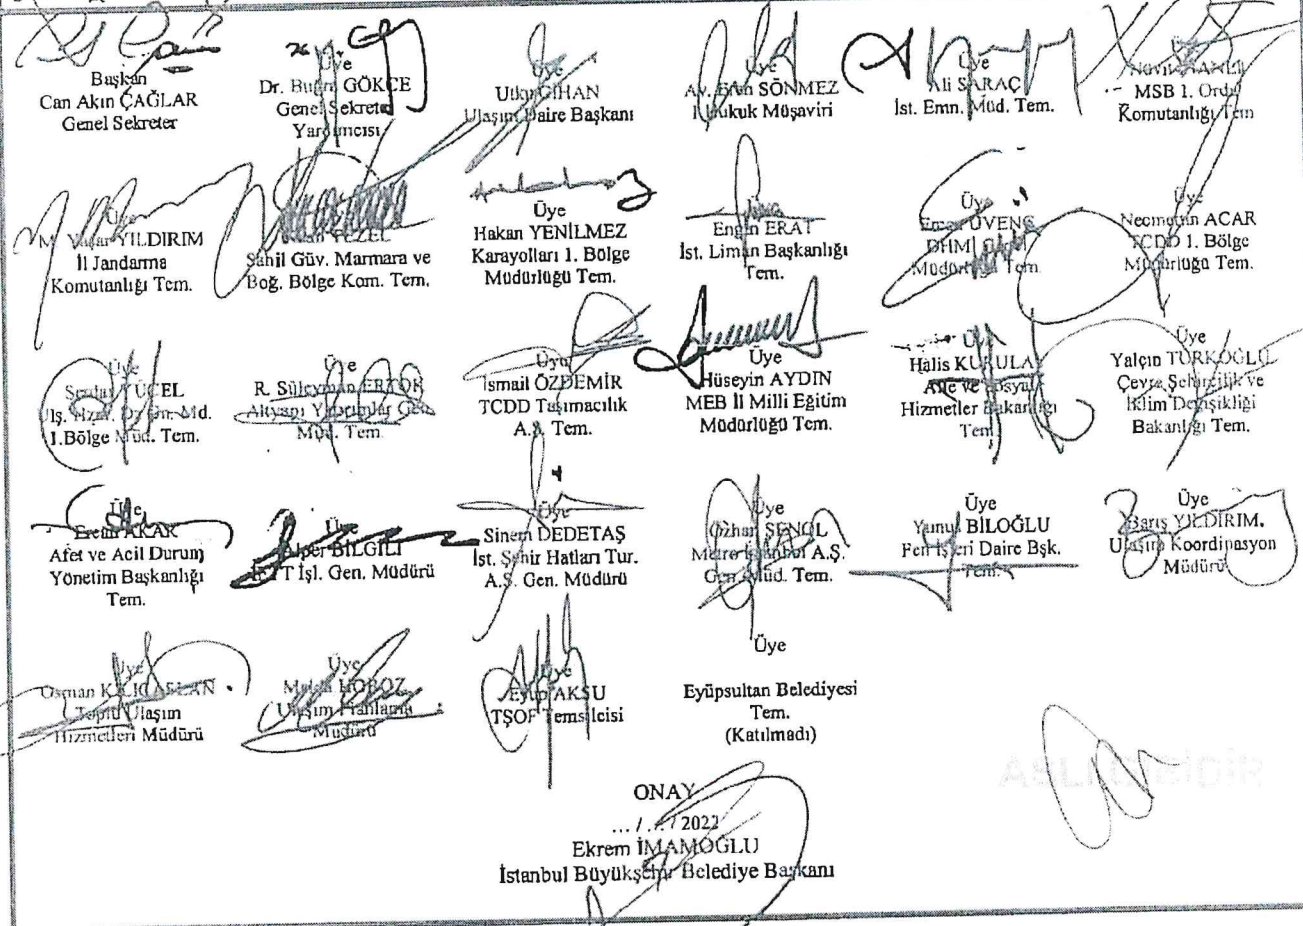 Başkan
Can Akın ÇAĞLAR
Genel Sekreter
Üye
Dr. Buğra GÖKÇE
Genel Sekreter
Yardımcısı
Üye
Utku CİHAN
Ulaşım Daire Başkanı
Üye
Av. Eren SÖNMEZ
I. Hukuk Müşaviri
Üye
Ali SARAÇ
İst. Emn. Müd. Tem.
Üye
MSB 1. Ordu
Komutanlığı Tem
Üye
M. Yaşar YILDIRIM
İl Jandarma
Komutanlığı Tem.
TEZEL
Sahil Güv. Marmara ve
Boğ. Bölge Kom. Tem.
Üye
Hakan YENİLMEZ
Karayolları 1. Bölge
Müdürlüğü Tem.
Engin ERAT
İst. Liman Başkanlığı
Tem.
Üye
GÜVENÇ
DHMİ
Müdürlüğü Tem.
Üye
Necmettin ACAR
TCDD 1. Bölge
Müdürlüğü Tem.
Üye
Serdar YÜCEL
Ulş. Hizm. Dz. Gn. Md.
1.Bölge Müd. Tem.
Üye
R. Süleyman ERTÜR
Altyapı Yatırımlar Gen.
Müd. Tem.
Üye
İsmail ÖZDEMİR
TCDD Taşımacılık
A.Ş. Tem.
Üye
Hüseyin AYDIN
MEB İl Milli Eğitim
Müdürlüğü Tem.
Üye
Halis KURULAY
Aile ve Sosyal
Hizmetler Bakanlığı
Tem.
Üye
Yalçın TÜRKOĞLU
Çevre Şehircilik ve
İklim Değişikliği
Bakanlığı Tem.
Üye
AKAR
Afet ve Acil Durum
Yönetim Başkanlığı
Tem.
Üye
Alper BİLGİLİ
İETT İşl. Gen. Müdürü
Üye
Sinem DEDETAŞ
İst. Şehir Hatları Tur.
A.Ş. Gen. Müdürü
Üye
Özhan ŞENOL
Metro İstanbul A.Ş.
Gen. Müd. Tem.
Üye
Yunus BİLOĞLU
Fen İşleri Daire Bşk.
Tem.
Üye
Barış YILDIRIM
Ulaşım Koordinasyon
Müdürü
Üye
Osman KILIÇASLAN
Toplu Ulaşım
Hizmetleri Müdürü
Üye
HOROZ
Ulaşım Planlama
Müdürü
Üye
Eyüp AKSU
TŞOF Temsilcisi
Üye
Eyüpsultan Belediyesi
Tem.
(Katılmadı)
ASLI GİBİDİR
ONAY
... / ... / 2022
Ekrem İMAMOĞLU
İstanbul Büyükşehir Belediye Başkanı